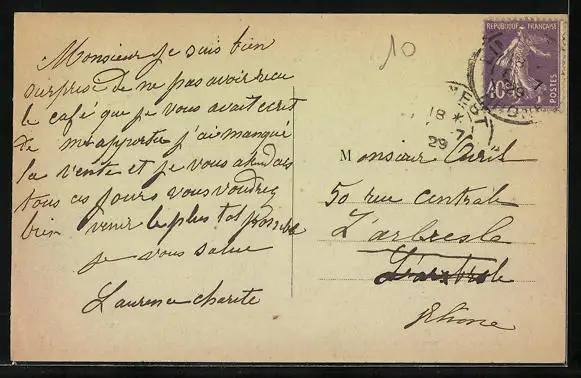 Monsieur je suis bien
surprise de ne pas avoir recu
le café que je vous avait ecrit
de m'apporter j'ai manqué
la vente et je vous atendais
tous ces jours vous voudrez
bien venir le plus tot possible
je vous salue
Laurence charite
10
REPUBLIQUE FRANÇAISE
40c
POSTES
18 *
7
29
Monsieur Avril
50 rue centrale
L'arbresle
Rhone